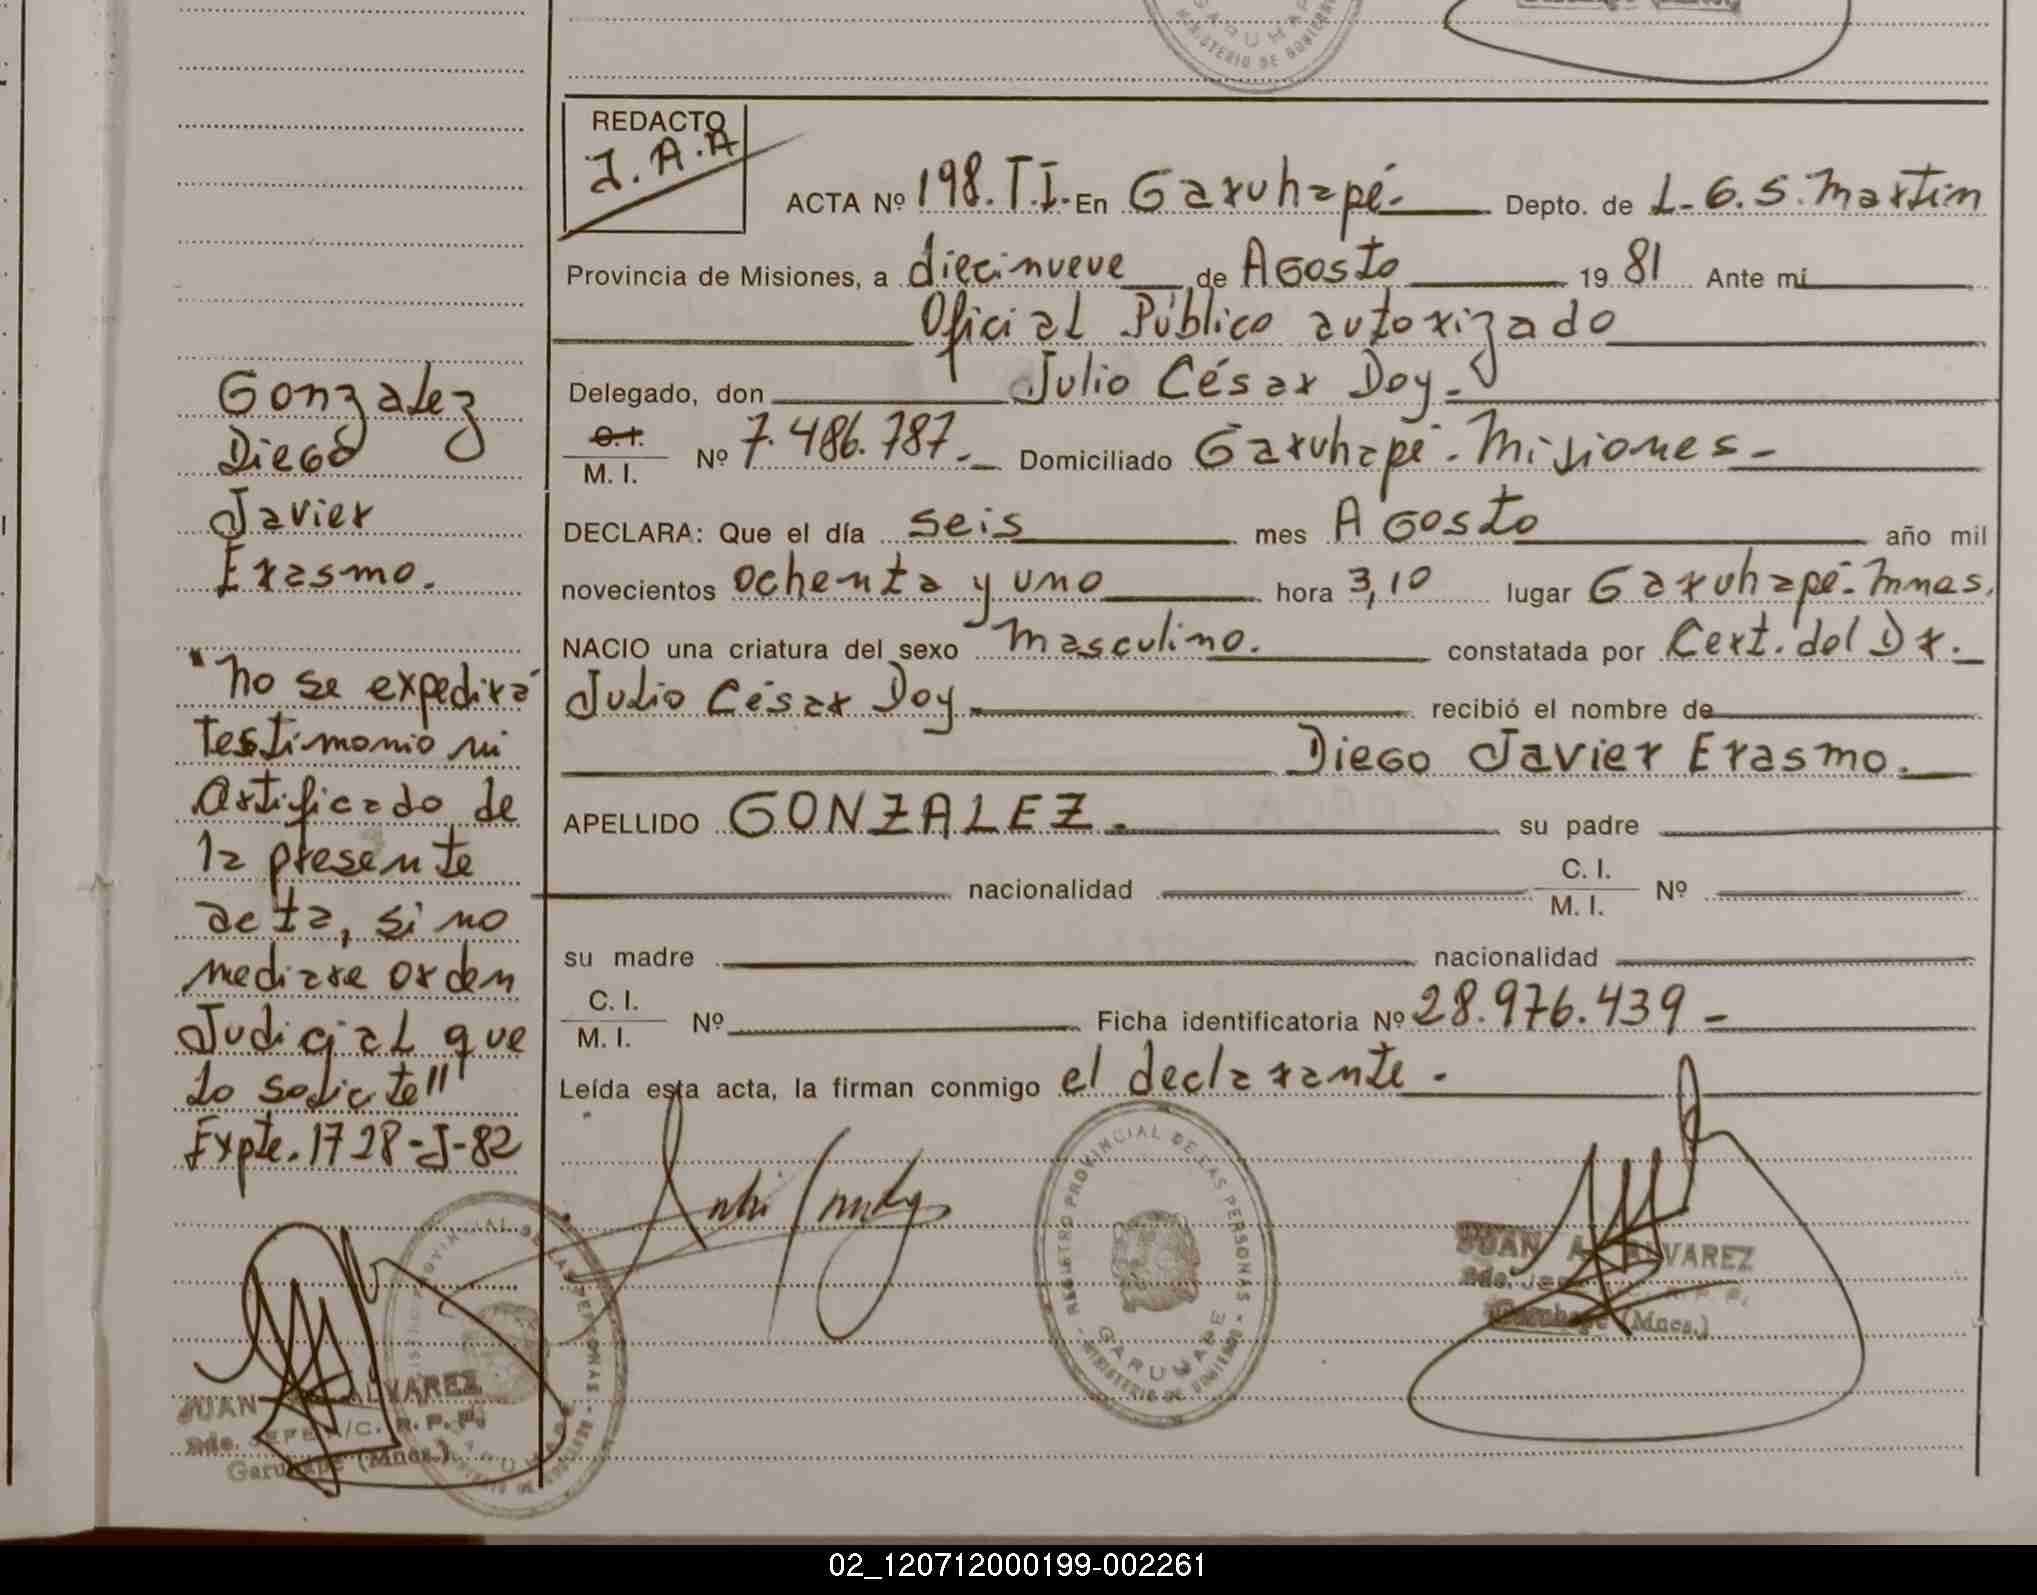 GARUHAPE
MINISTERIO DE GOBIERNO
REDACTO
J. A. A
ACTA Nº 198. T.I. En Garuhapé. Depto. de L. G. S. Martin
Provincia de Misiones, a diecinueve de Agosto 19 81 Ante mí
Oficial Público autorizado
Delegado, don Julio César Doy.
C.I.
M. I. Nº 7.486.787. Domiciliado Garuhapé. Misiones
DECLARA: Que el día seis mes Agosto año mil
novecientos ochenta y uno hora 3,10 lugar Garuhapé. Mnes.
NACIO una criatura del sexo masculino. constatada por Cert. del Dr.
Julio César Doy recibió el nombre de
Diego Javier Erasmo.
APELLIDO GONZALEZ. su padre
nacionalidad C. I.
M. I. Nº
su madre nacionalidad
C. I.
M. I. Nº Ficha identificatoria Nº 28.976.439
Leída esta acta, la firman conmigo el declarante.
Gonzalez
Diego
Javier
Erasmo.
"no se expedirá
testimonio ni
certificado de
la presente
acta, si no
mediare orden
Judicial que
lo solicite"
Expte. 1728-J-82
REGISTRO PROVINCIAL DE LAS PERSONAS
GARUHAPE
MINISTERIO DE GOBIERNO
JUAN A. ALVAREZ
Garuhape (Mnes.)
JUAN ALVAREZ
JEFE A/C. R. P. P.
Garuhape (Mnes.)
02_120712000199-002261